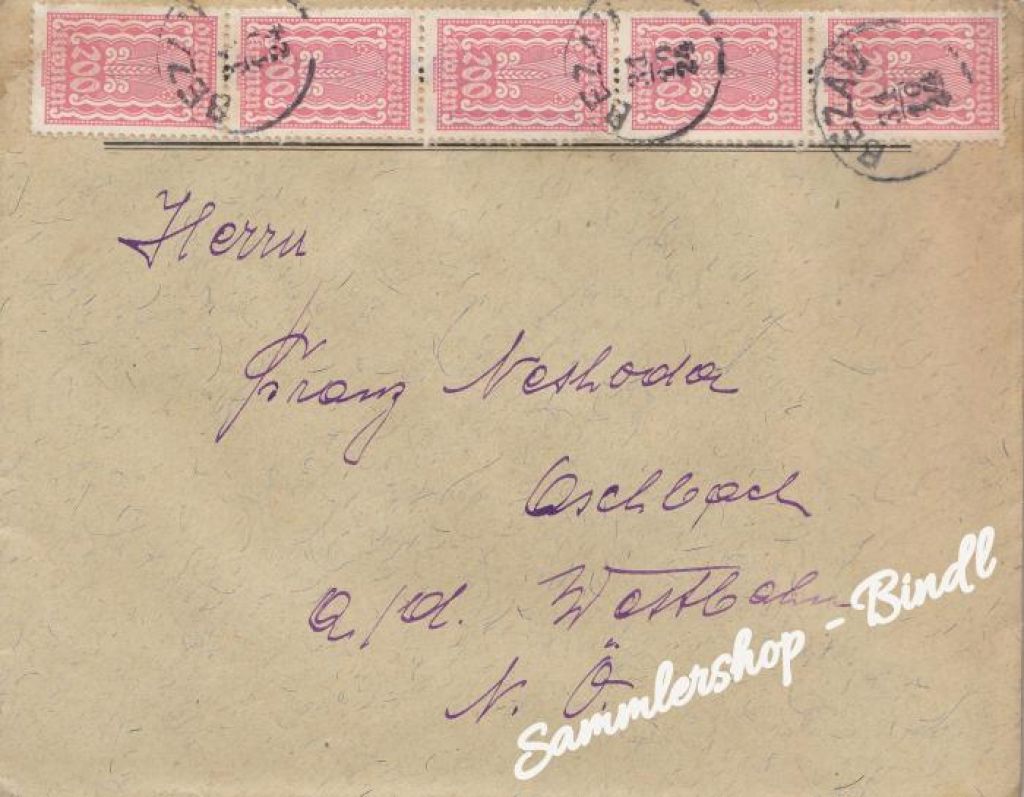 200 200 200 200 200
BEZAU
BEZAU 31 10 24
BEZAU
Herrn
Franz Neshoda
Aschbach
a/d. Westbahn
N. Ö.
Sammlershop - Bindl